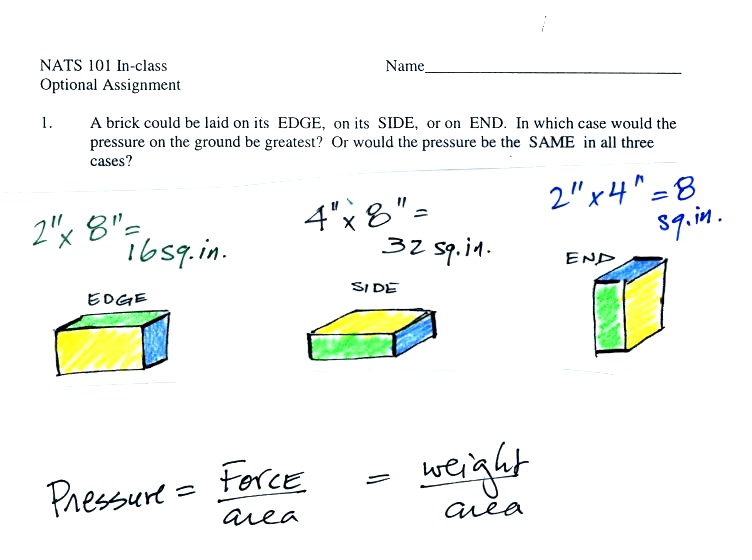 NATS 101 In-class
Name
Optional Assignment
1. A brick could be laid on its EDGE, on its SIDE, or on END. In which case would the
pressure on the ground be greatest? Or would the pressure be the SAME in all three
cases?
2" x 8" =
16 sq. in.
4" x 8" =
32 sq. in.
2" x 4" = 8
sq. in.
EDGE
SIDE
END
Pressure = FORCE / area = weight / area